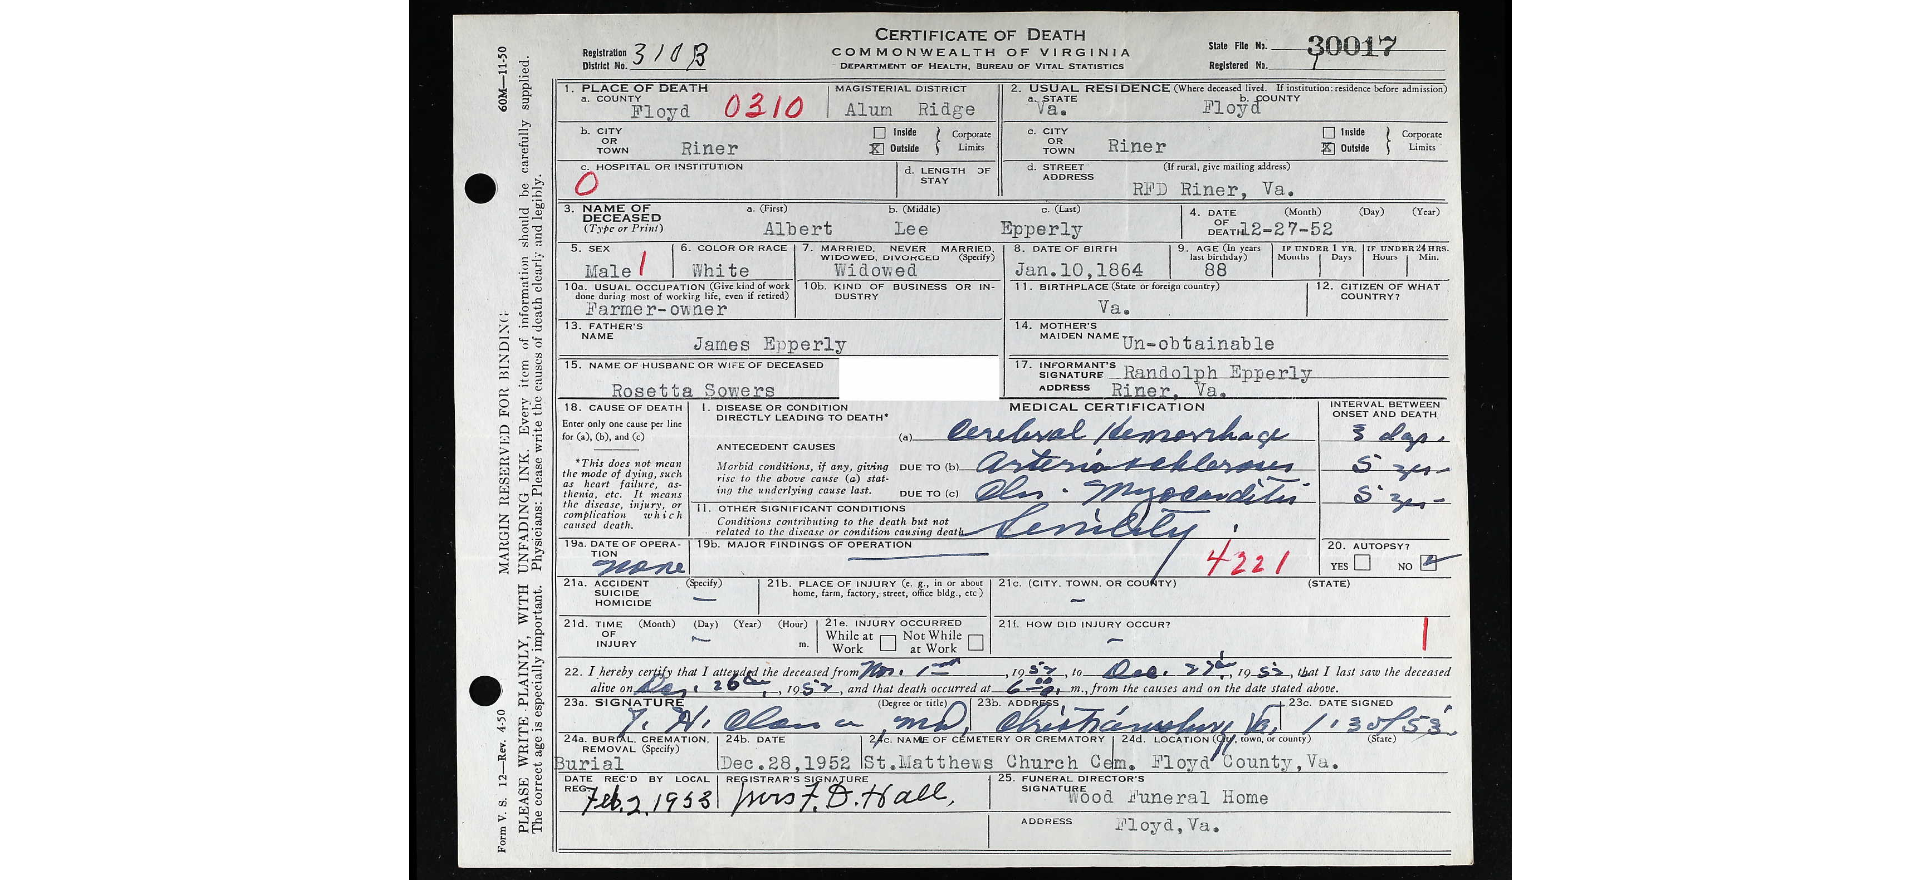 CERTIFICATE OF DEATH
COMMONWEALTH OF VIRGINIA
DEPARTMENT OF HEALTH, BUREAU OF VITAL STATISTICS
Registration District No. 310B
State File No. 30017
Registered No.
60M—11-50
MARGIN RESERVED FOR BINDING
PLEASE WRITE PLAINLY, WITH UNFADING INK. Every item of information should be carefully supplied.
The correct age is especially important. Physicians: Please write the causes of death clearly and legibly.
Form V. S. 12—Rev. 4-50
1. PLACE OF DEATH
a. COUNTY Floyd 0310
MAGISTERIAL DISTRICT Alum Ridge
2. USUAL RESIDENCE (Where deceased lived. If institution: residence before admission)
a. STATE Va. b. COUNTY Floyd
b. CITY OR TOWN Riner Inside X Outside Corporate Limits
c. CITY OR TOWN Riner Inside X Outside Corporate Limits
c. HOSPITAL OR INSTITUTION 0
d. LENGTH OF STAY
d. STREET ADDRESS (If rural, give mailing address) RFD Riner, Va.
3. NAME OF DECEASED (Type or Print) a. (First) b. (Middle) c. (Last)
Albert Lee Epperly
4. DATE OF DEATH (Month) (Day) (Year) 12-27-52
5. SEX Male 1
6. COLOR OR RACE White
7. MARRIED, NEVER MARRIED, WIDOWED, DIVORCED (Specify) Widowed
8. DATE OF BIRTH Jan.10,1864
9. AGE (In years last birthday) 88
IF UNDER 1 YR. Months Days
IF UNDER 24 HRS. Hours Min.
10a. USUAL OCCUPATION (Give kind of work done during most of working life, even if retired) Farmer-owner
10b. KIND OF BUSINESS OR INDUSTRY
11. BIRTHPLACE (State or foreign country) Va.
12. CITIZEN OF WHAT COUNTRY?
13. FATHER'S NAME James Epperly
14. MOTHER'S MAIDEN NAME Un-obtainable
15. NAME OF HUSBAND OR WIFE OF DECEASED
Rosetta Sowers
17. INFORMANT'S SIGNATURE Randolph Epperly
ADDRESS Riner, Va.
18. CAUSE OF DEATH
Enter only one cause per line for (a), (b), and (c)
*This does not mean the mode of dying, such as heart failure, asthenia, etc. It means the disease, injury, or complication which caused death.
MEDICAL CERTIFICATION
INTERVAL BETWEEN ONSET AND DEATH
I. DISEASE OR CONDITION DIRECTLY LEADING TO DEATH*
(a) Cerebral Hemorrhage days
ANTECEDENT CAUSES
Morbid conditions, if any, giving rise to the above cause (a) stating the underlying cause last.
DUE TO (b) 5 yrs
DUE TO (c) Chr. Myocarditis 5 yrs
II. OTHER SIGNIFICANT CONDITIONS
Conditions contributing to the death but not related to the disease or condition causing death.
Senility
4221
19a. DATE OF OPERATION None
19b. MAJOR FINDINGS OF OPERATION —
20. AUTOPSY? YES NO
21a. ACCIDENT SUICIDE HOMICIDE (Specify) —
21b. PLACE OF INJURY (e. g., in or about home, farm, factory, street, office bldg., etc)
21c. (CITY, TOWN, OR COUNTY) (STATE)
—
21d. TIME OF INJURY (Month) (Day) (Year) (Hour) m.
21e. INJURY OCCURRED While at Work Not While at Work
21f. HOW DID INJURY OCCUR?
— 1
22. I hereby certify that I attended the deceased from 1st, 1952, to Dec. 27th, 1952, that I last saw the deceased
alive on Dec. 26th, 1952, and that death occurred at 6 m., from the causes and on the date stated above.
23a. SIGNATURE (Degree or title) MD
23b. ADDRESS Christiansburg Va.
23c. DATE SIGNED 1-30-53
24a. BURIAL, CREMATION, REMOVAL (Specify) Burial
24b. DATE Dec.28,1952
24c. NAME OF CEMETERY OR CREMATORY St.Matthews Church Cem.
24d. LOCATION (City, town, or county) (State) Floyd County,Va.
DATE REC'D BY LOCAL REG. Feb.2,1953
REGISTRAR'S SIGNATURE Mrs F. D. Hall,
25. FUNERAL DIRECTOR'S SIGNATURE Wood Funeral Home
ADDRESS Floyd,Va.